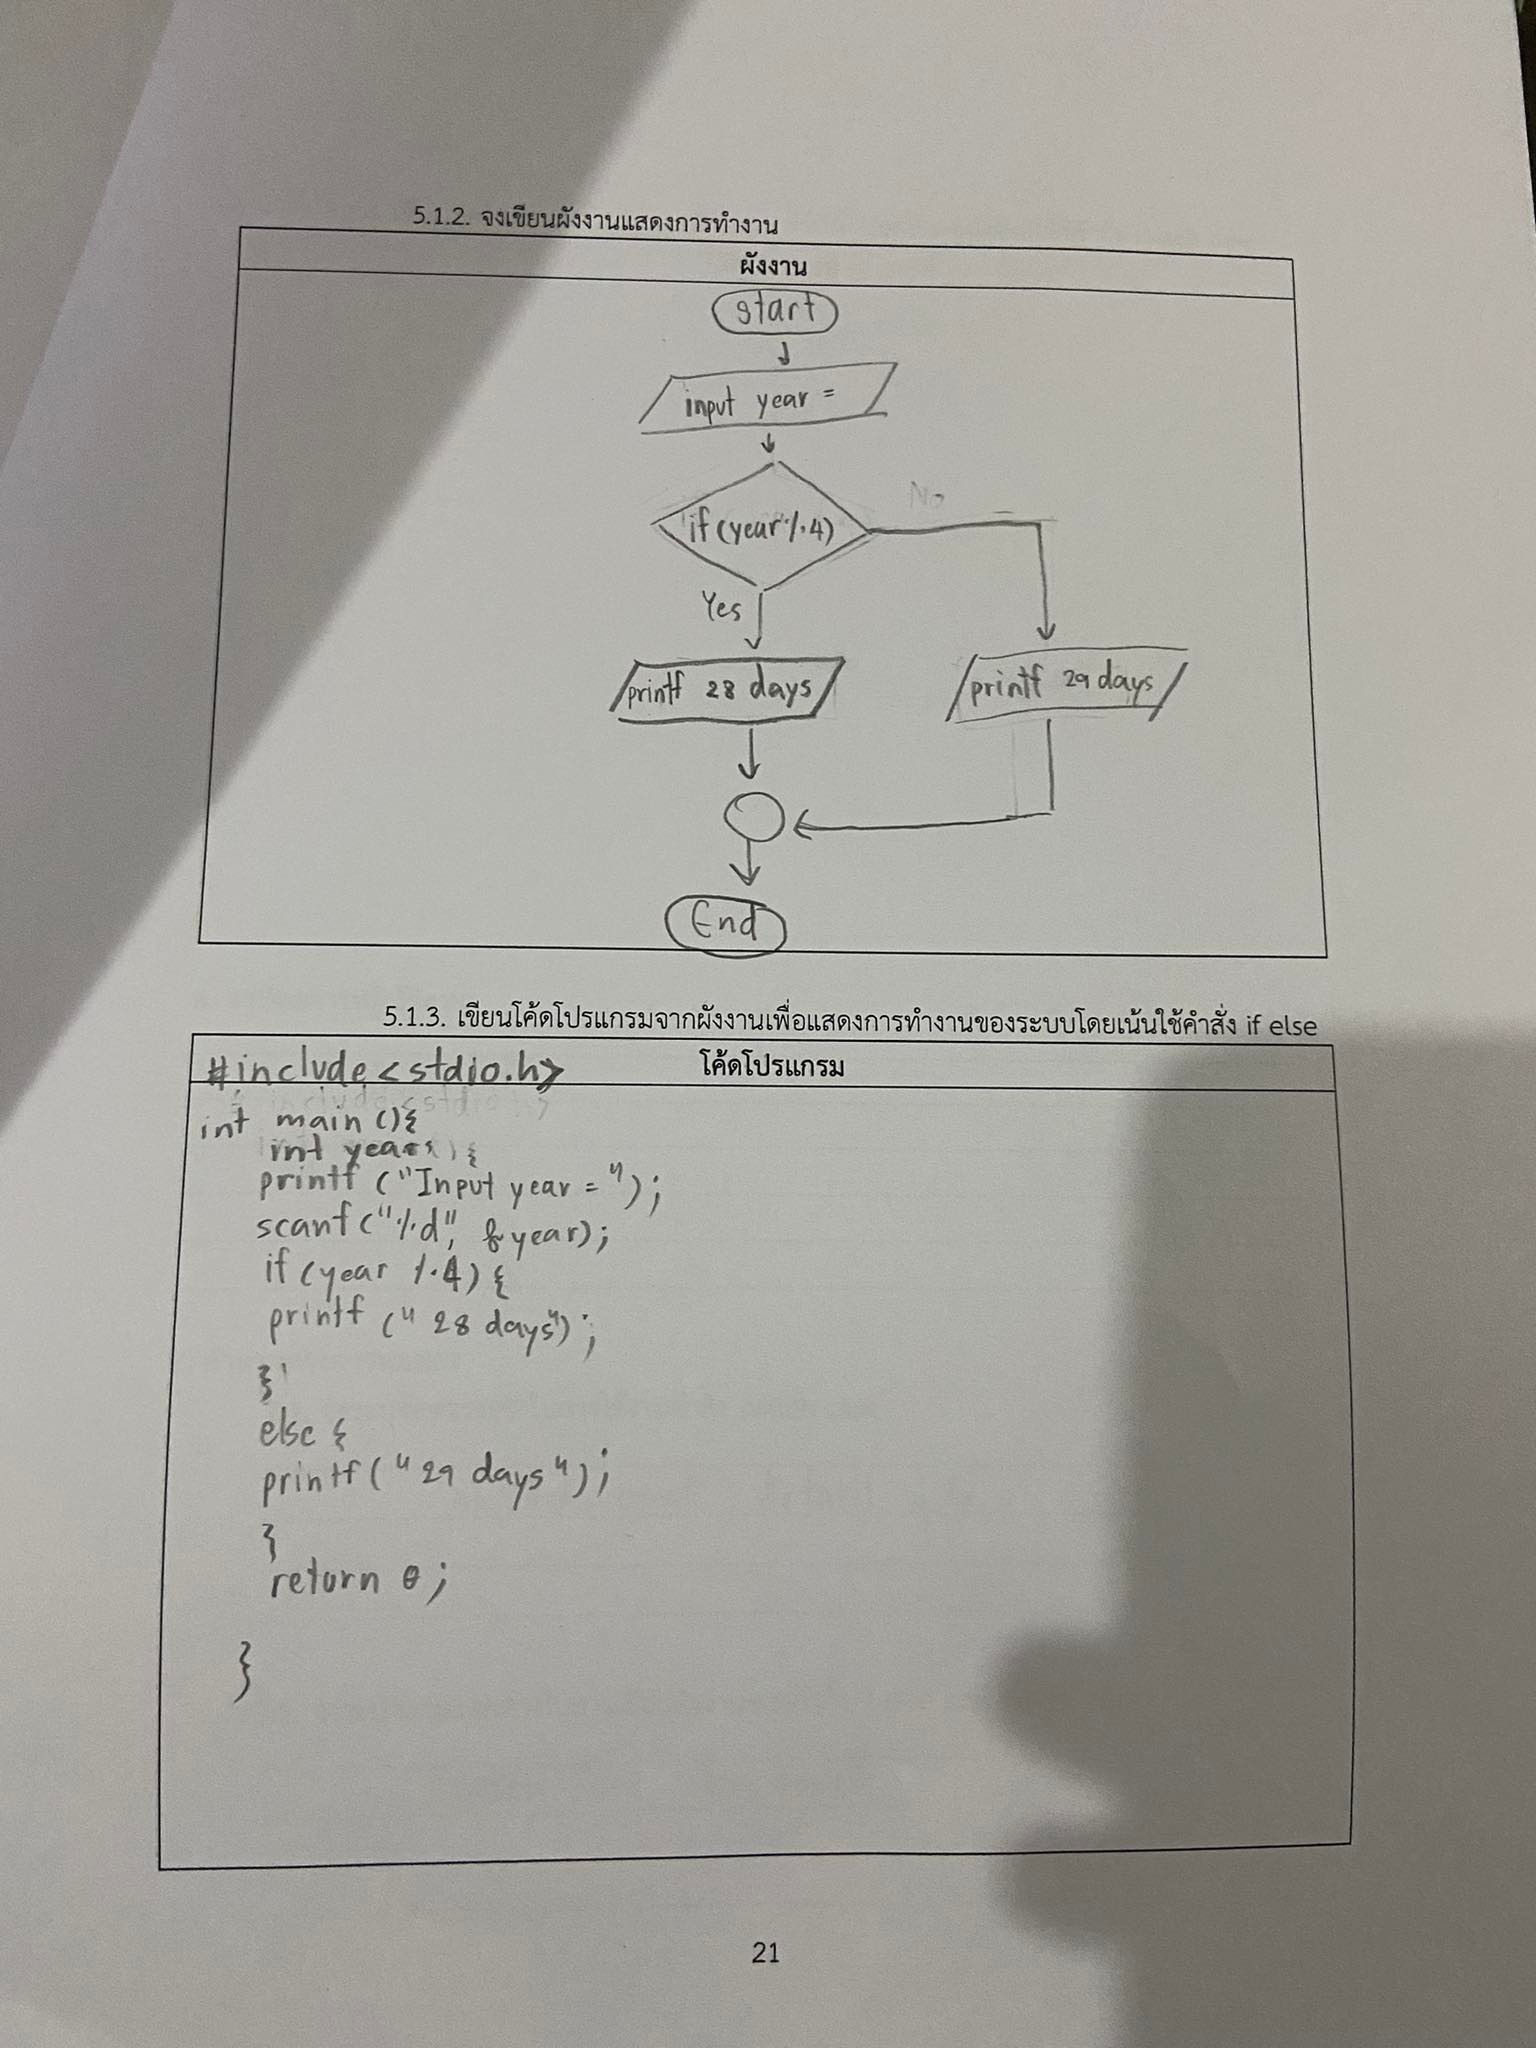 5.1.2. จงเขียนผังงานแสดงการทำงาน
ผังงาน
start
input year =
if (year % 4)
No
Yes
printf 28 days
printf 29 days
End
5.1.3. เขียนโค้ดโปรแกรมจากผังงานเพื่อแสดงการทำงานของระบบโดยเน้นใช้คำสั่ง if else
โค้ดโปรแกรม
#include <stdio.h>
int main (){
int year
printf ("Input year = ");
scanf ("%d", &year);
if (year % 4) {
printf (" 28 days");
}
else {
printf (" 29 days ");
}
return 0;
}
21